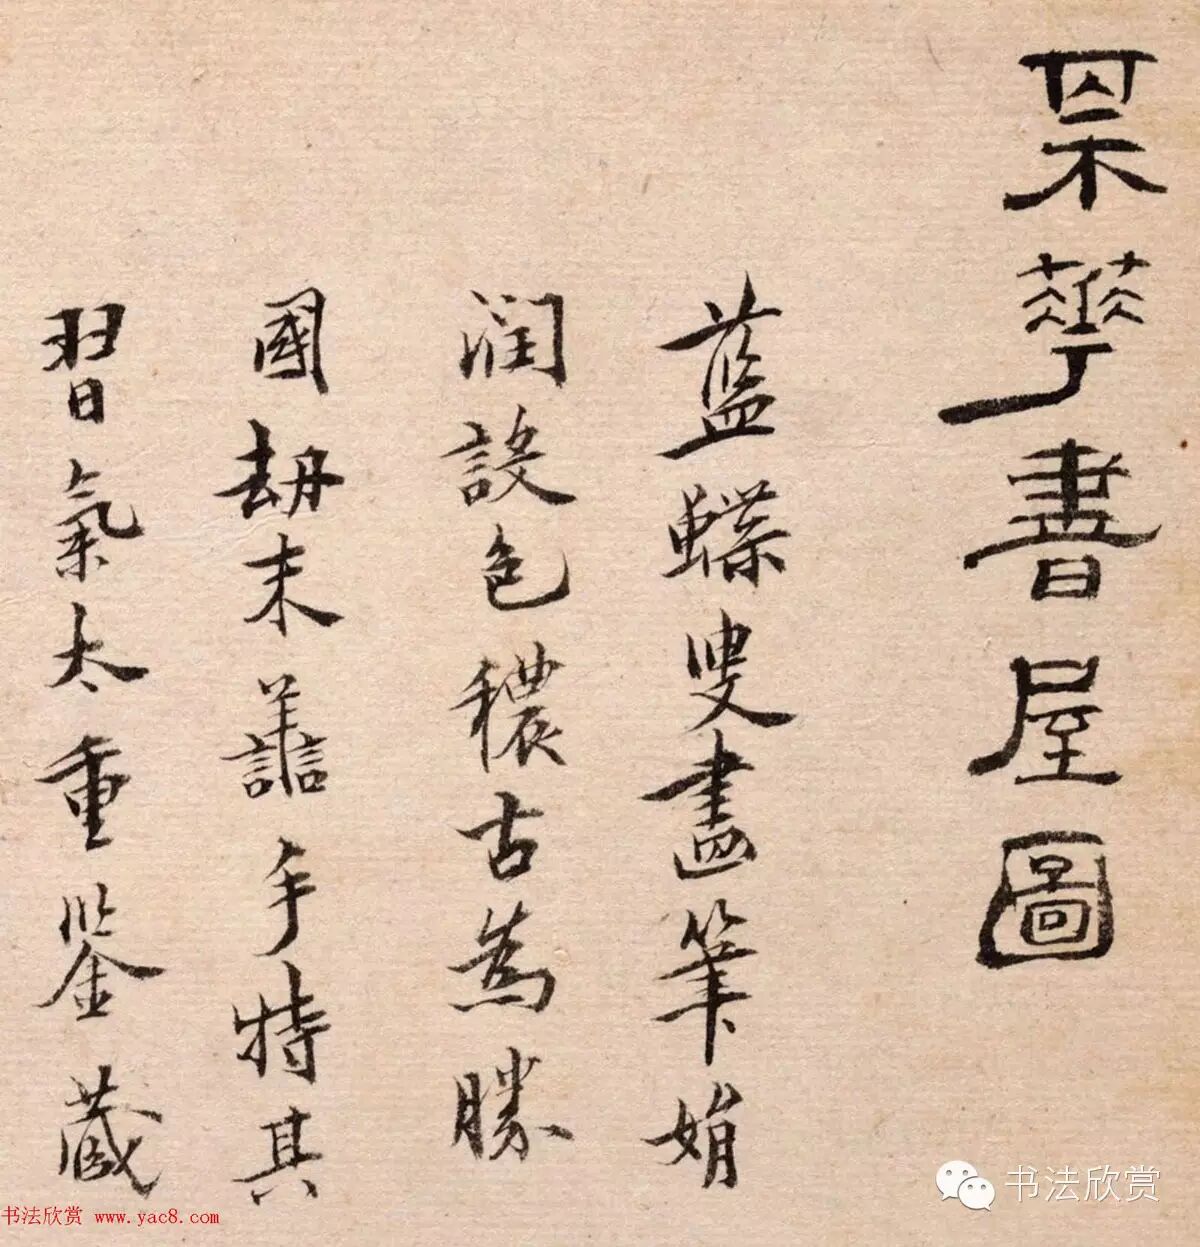 華書屋圖
藍蝶叟畫筆娟
潤設色穠古為勝
國劫末譱手特其
習氣太重鑒藏
书法欣赏
书法欣赏 www.yac8.com